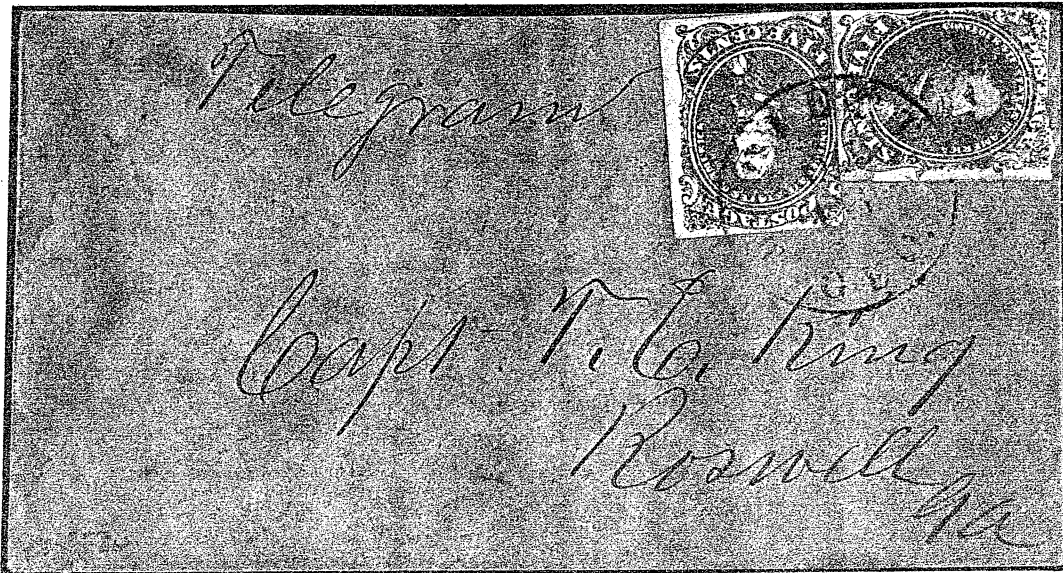 Telegram
Capt. T. E. King
Roswell
Ga